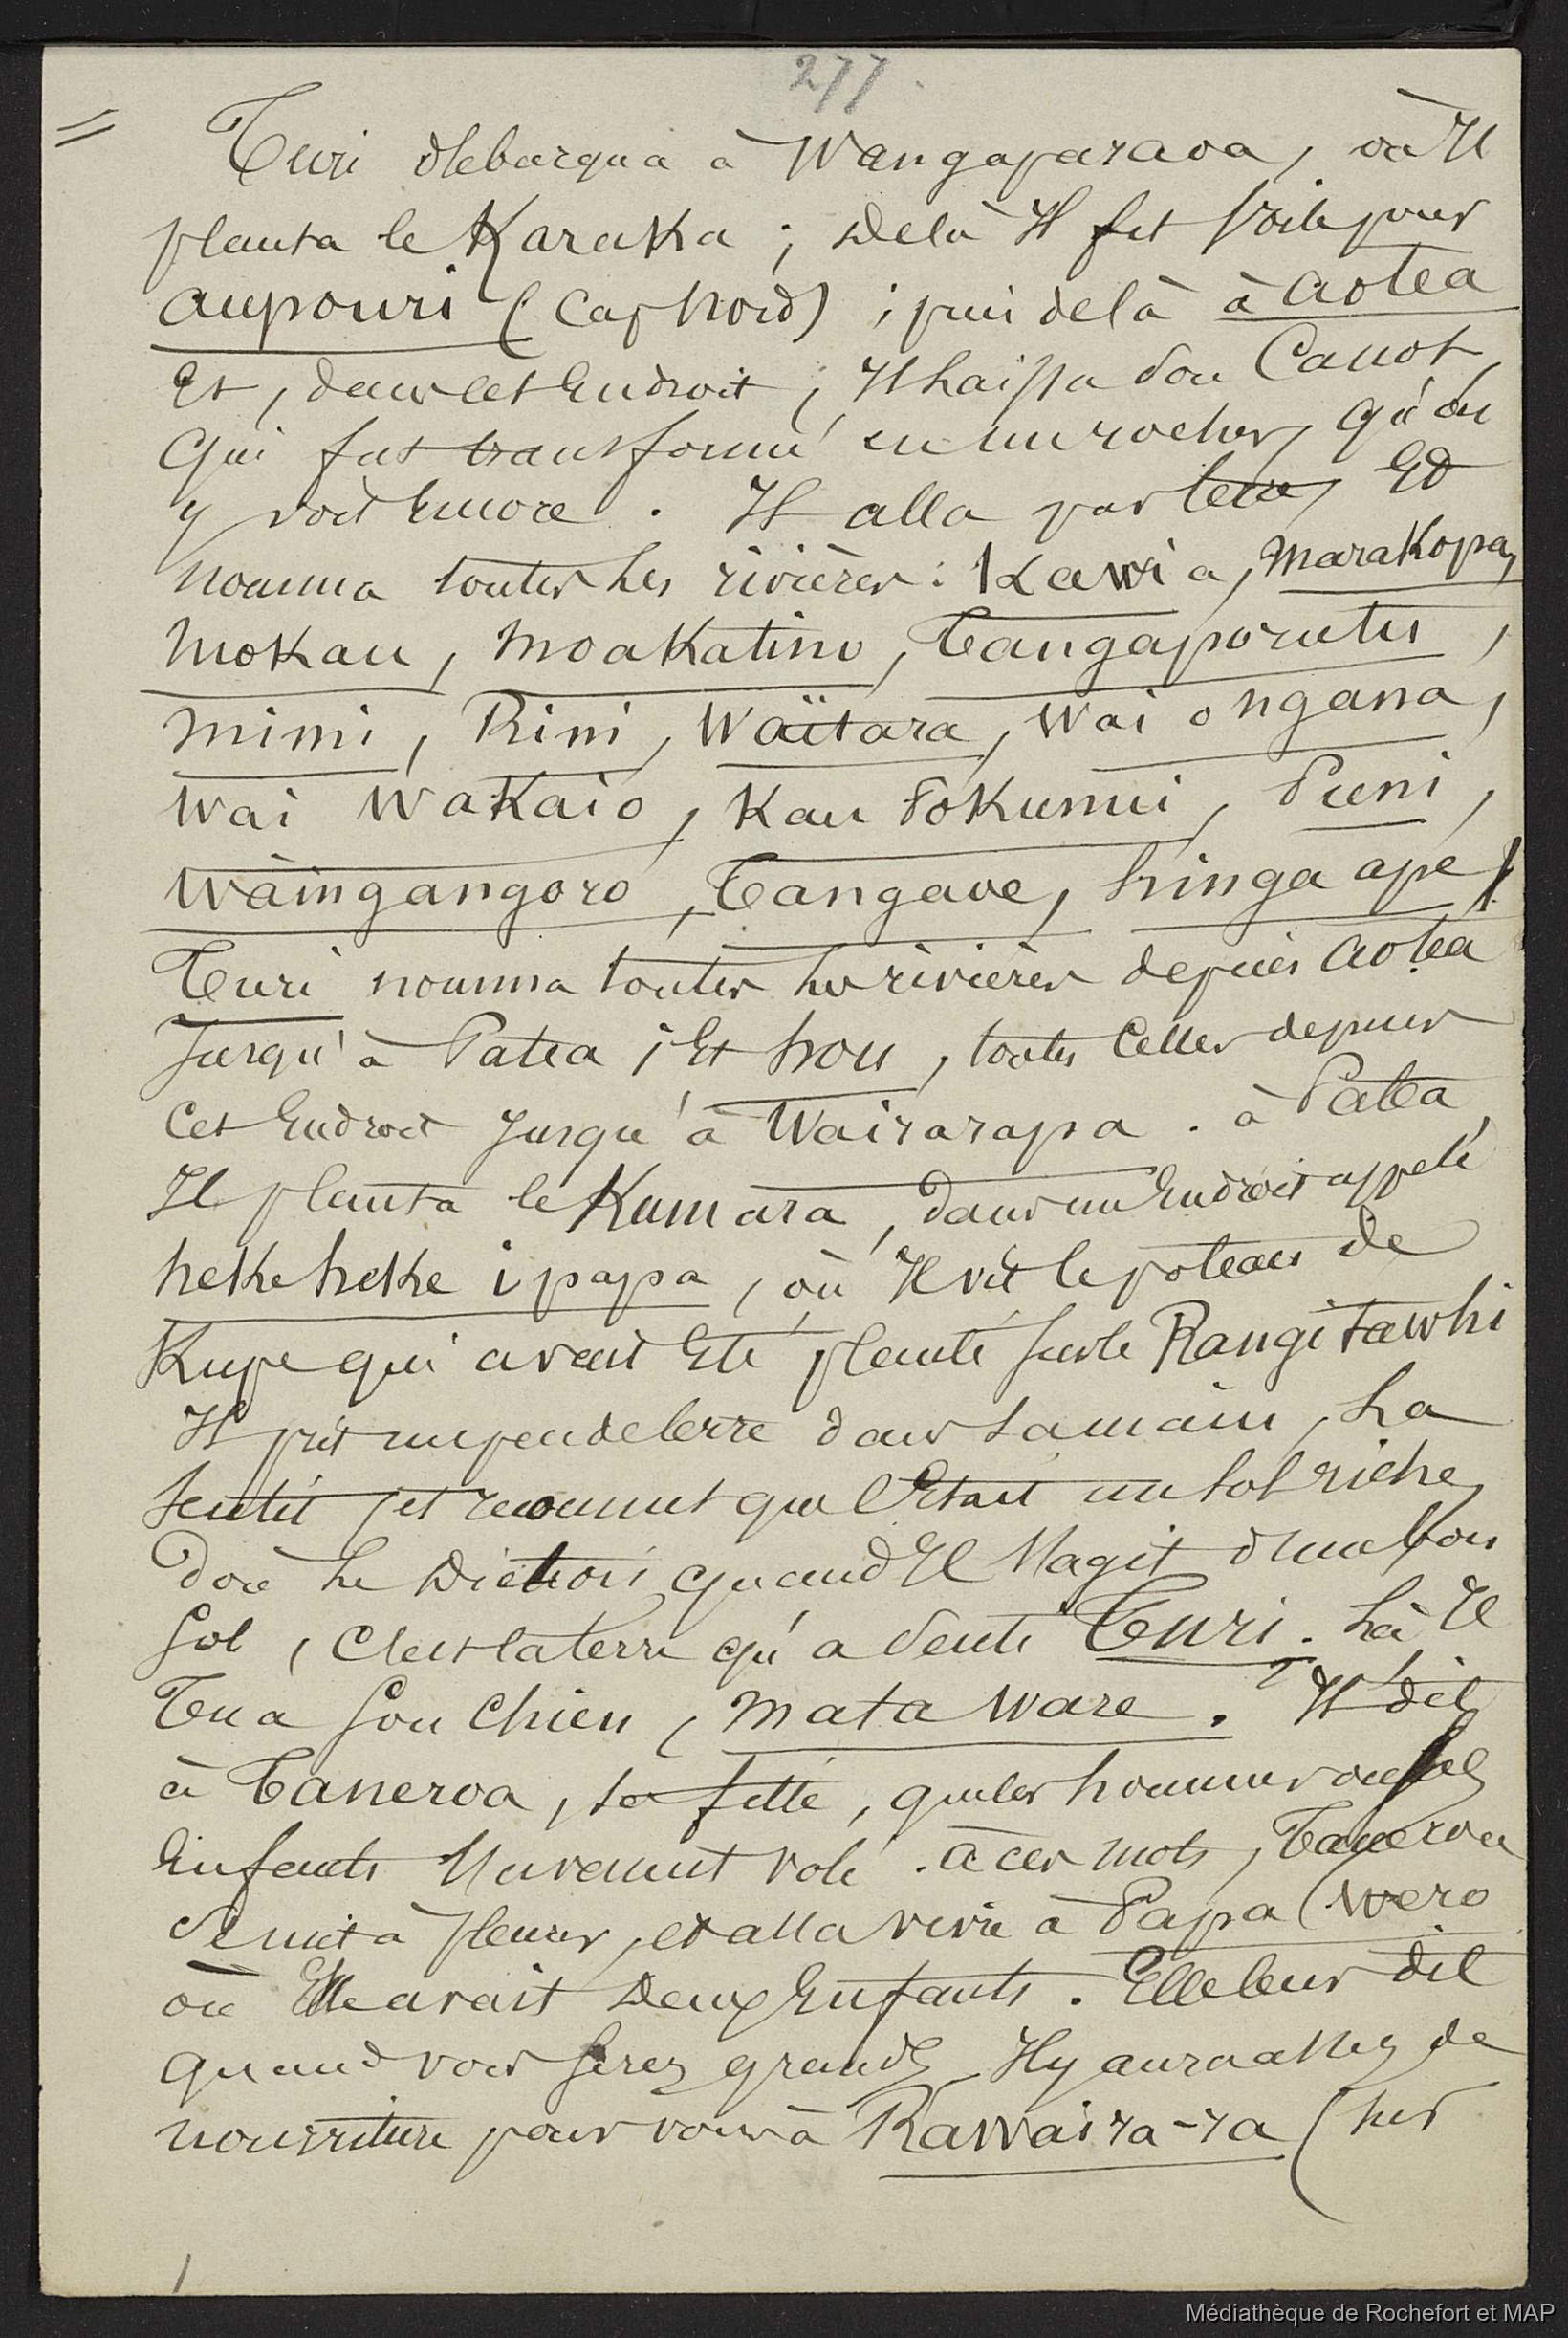 277.
= Turi débarqua à Wangaparaoa, où Il
planta le Karaka ; de là Il fit voile pour
Aupouri (Cap Nord) ; puis de là à Aotea
Et, dans cet Endroit, Il laissa son Canot,
Qui fut transformé en un rocher, qu'on
y voit Encore. Il alla par terre, Et
nomma toutes les rivières : Kawia, Marakopa,
Mokau, Moakatino, Tangaporutu,
Mimi, Rimi, Waïtara, Wai ongana,
Wai Wakaio, Kau Pokunui, Puni,
Waingangoro, Tangaoe, hinga ape,
Turi nomma toutes les rivières depuis Aotea
Jusqu'à Patea ; Et hou, toutes Celles depuis
Cet Endroit Jusqu'à Wairarapa. à Patea,
Il planta le Kumara, dans un Endroit appelé
heke heke i papa, où Il vit le poteau de
Kupe qui avait Été planté sur le Rangitawhi
Il prit un peu de terre dans sa main, La
sentit, et reconnut que C'Était un sol riche,
D'où Le Dicton, quand Il s'agit d'un bon
Sol, C'est la terre qu'a senti Turi. Là Il
Tua son Chien, Mata Ware. Il dit
à Taneroa, sa fille, que les hommes ou ses
Enfants l'avaient volé. à ces mots, Taneroa
Se mit à pleurer, et alla vivre à Papa Wero
où Elle avait Deux Enfants. Elle leur dit
quand vous serez grands, Il y aura assez de
nourriture pour vous à Rawaira-ra (sur
Médiathèque de Rochefort et MAP